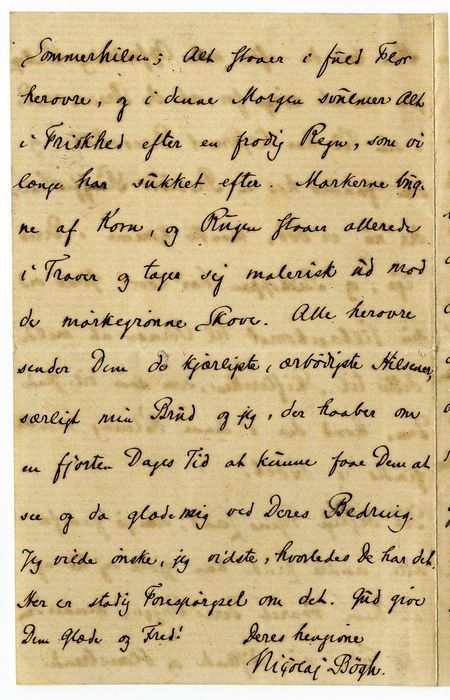 Sommerhilsen; Alt staaer i fuld Flor
herovre, og i denne Morgen svulmer Alt
i Friskhed efter en frodig Regn, som vi
længe har sukket efter. Markerne bug-
ne af Korn, og Rugen staaer allerede
i Traver og tager sig malerisk ud mod
de mørkegrønne Skove. Alle herovre
sender Dem de kjærligste, ærbødigste Hilsener,
særligt min Brud og jeg, der haaber om
en fjorten Dages Tid at kunne faae Dem at
see og da glæde mig ved Deres Bedring.
Jeg vilde ønske, jeg vidste, hvorledes De har det.
Her er stadig Forespørgsel om det. Gud give
Dem Glæde og Fred!
Deres hengivne
Nicolaj Bøgh.